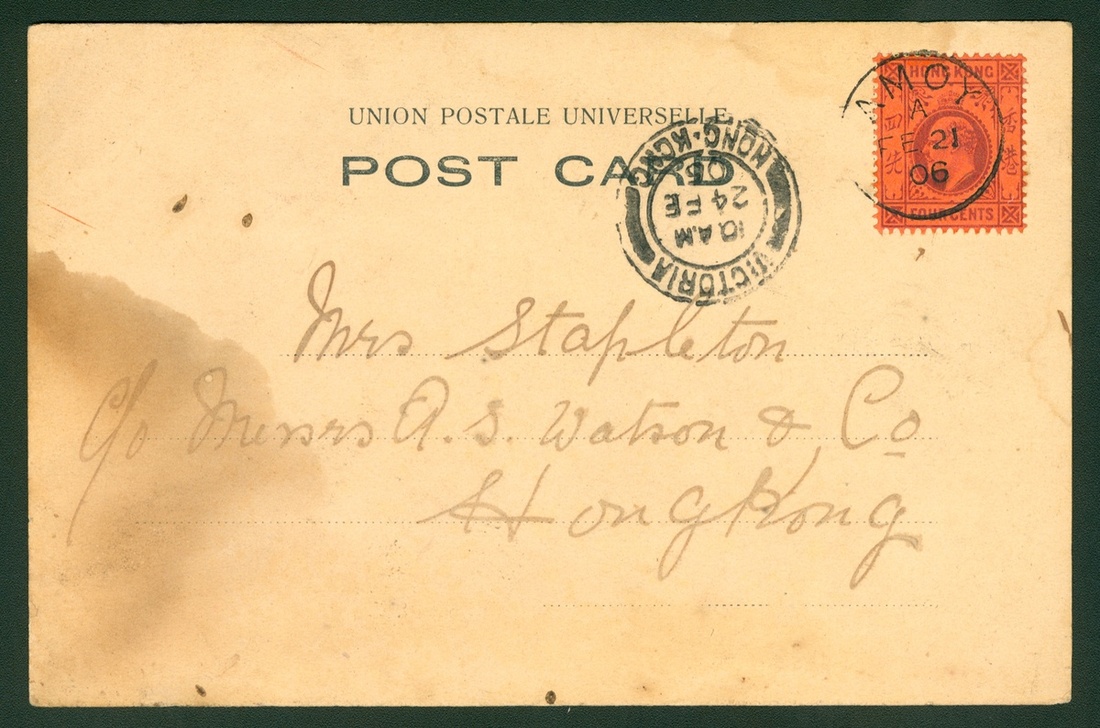 UNION POSTALE UNIVERSELLE
POST CARD
HONG KONG
香港
四
FOUR CENTS
AMOY
A
FE 21
06
VICTORIA
10 AM
24 FE
06
HONG·KONG
Mrs Stapleton
C/o Messrs A. S. Watson & Co
HongKong